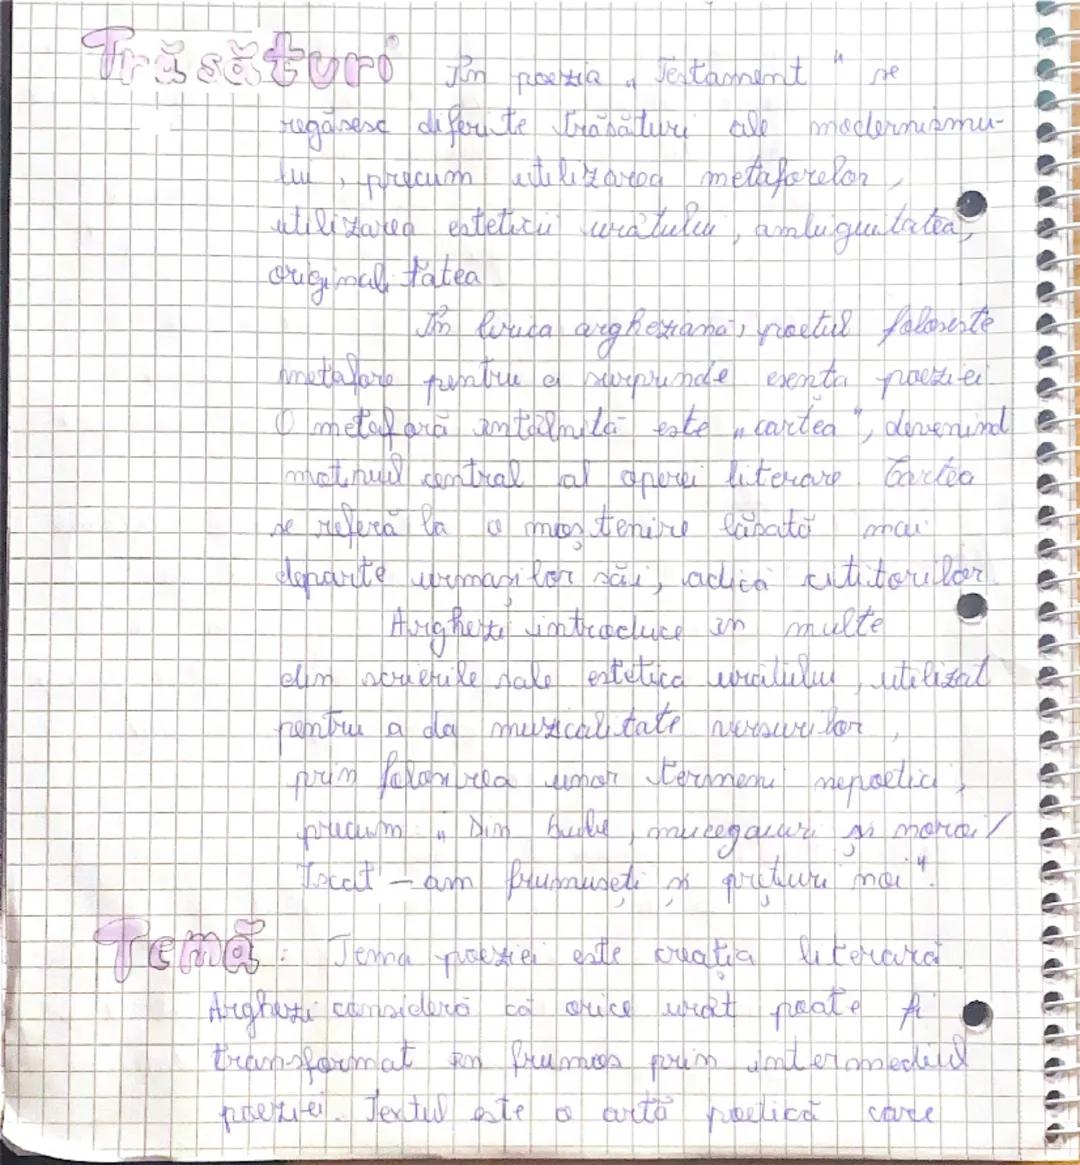 Trăsături În poezia „Testament" se
regăsesc diferite trăsături ale modernismu-
lui, precum utilizarea metaforelor,
utilizarea esteticii urâtului, ambiguitatea,
originalitatea
În lirica argheziană, poetul folosește
metafore pentru a surprinde esența poeziei.
O metaforă întâlnită este „cartea", devenind
motivul central al operei literare Cartea
se referă la o moștenire lăsată mai
departe urmașilor săi, adică cititorilor.
Arghezi introduce în multe
din scrierile sale estetica urâtului, utilizat
pentru a da muzicalitate versurilor,
prin folosirea unor termeni nepoetici,
precum: „Din bube, mucegaiuri și noroi/
Iscat-am frumuseți și prețuri noi".
Temă: Tema poeziei este creația literară
Arghezi consideră că orice urât poate fi
transformat în frumos prin intermediul
poeziei. Textul este o artă poetică care